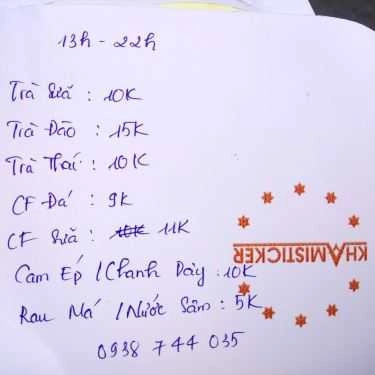 13h - 22h
Trà Sữa : 10K
Trà Đào : 15K
Trà Thái : 10K
CF Đá : 9K
CF Sữa : 10K 11K
Cam Ép / Chanh Dây : 10K
Rau Má / Nước Sâm : 5K
0938 744 035
KHAMISTICKER